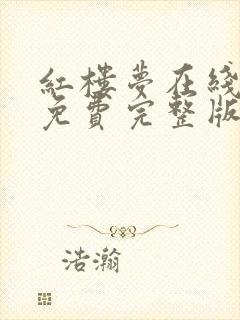 红楼夢在綫
免費完整版
浩瀚